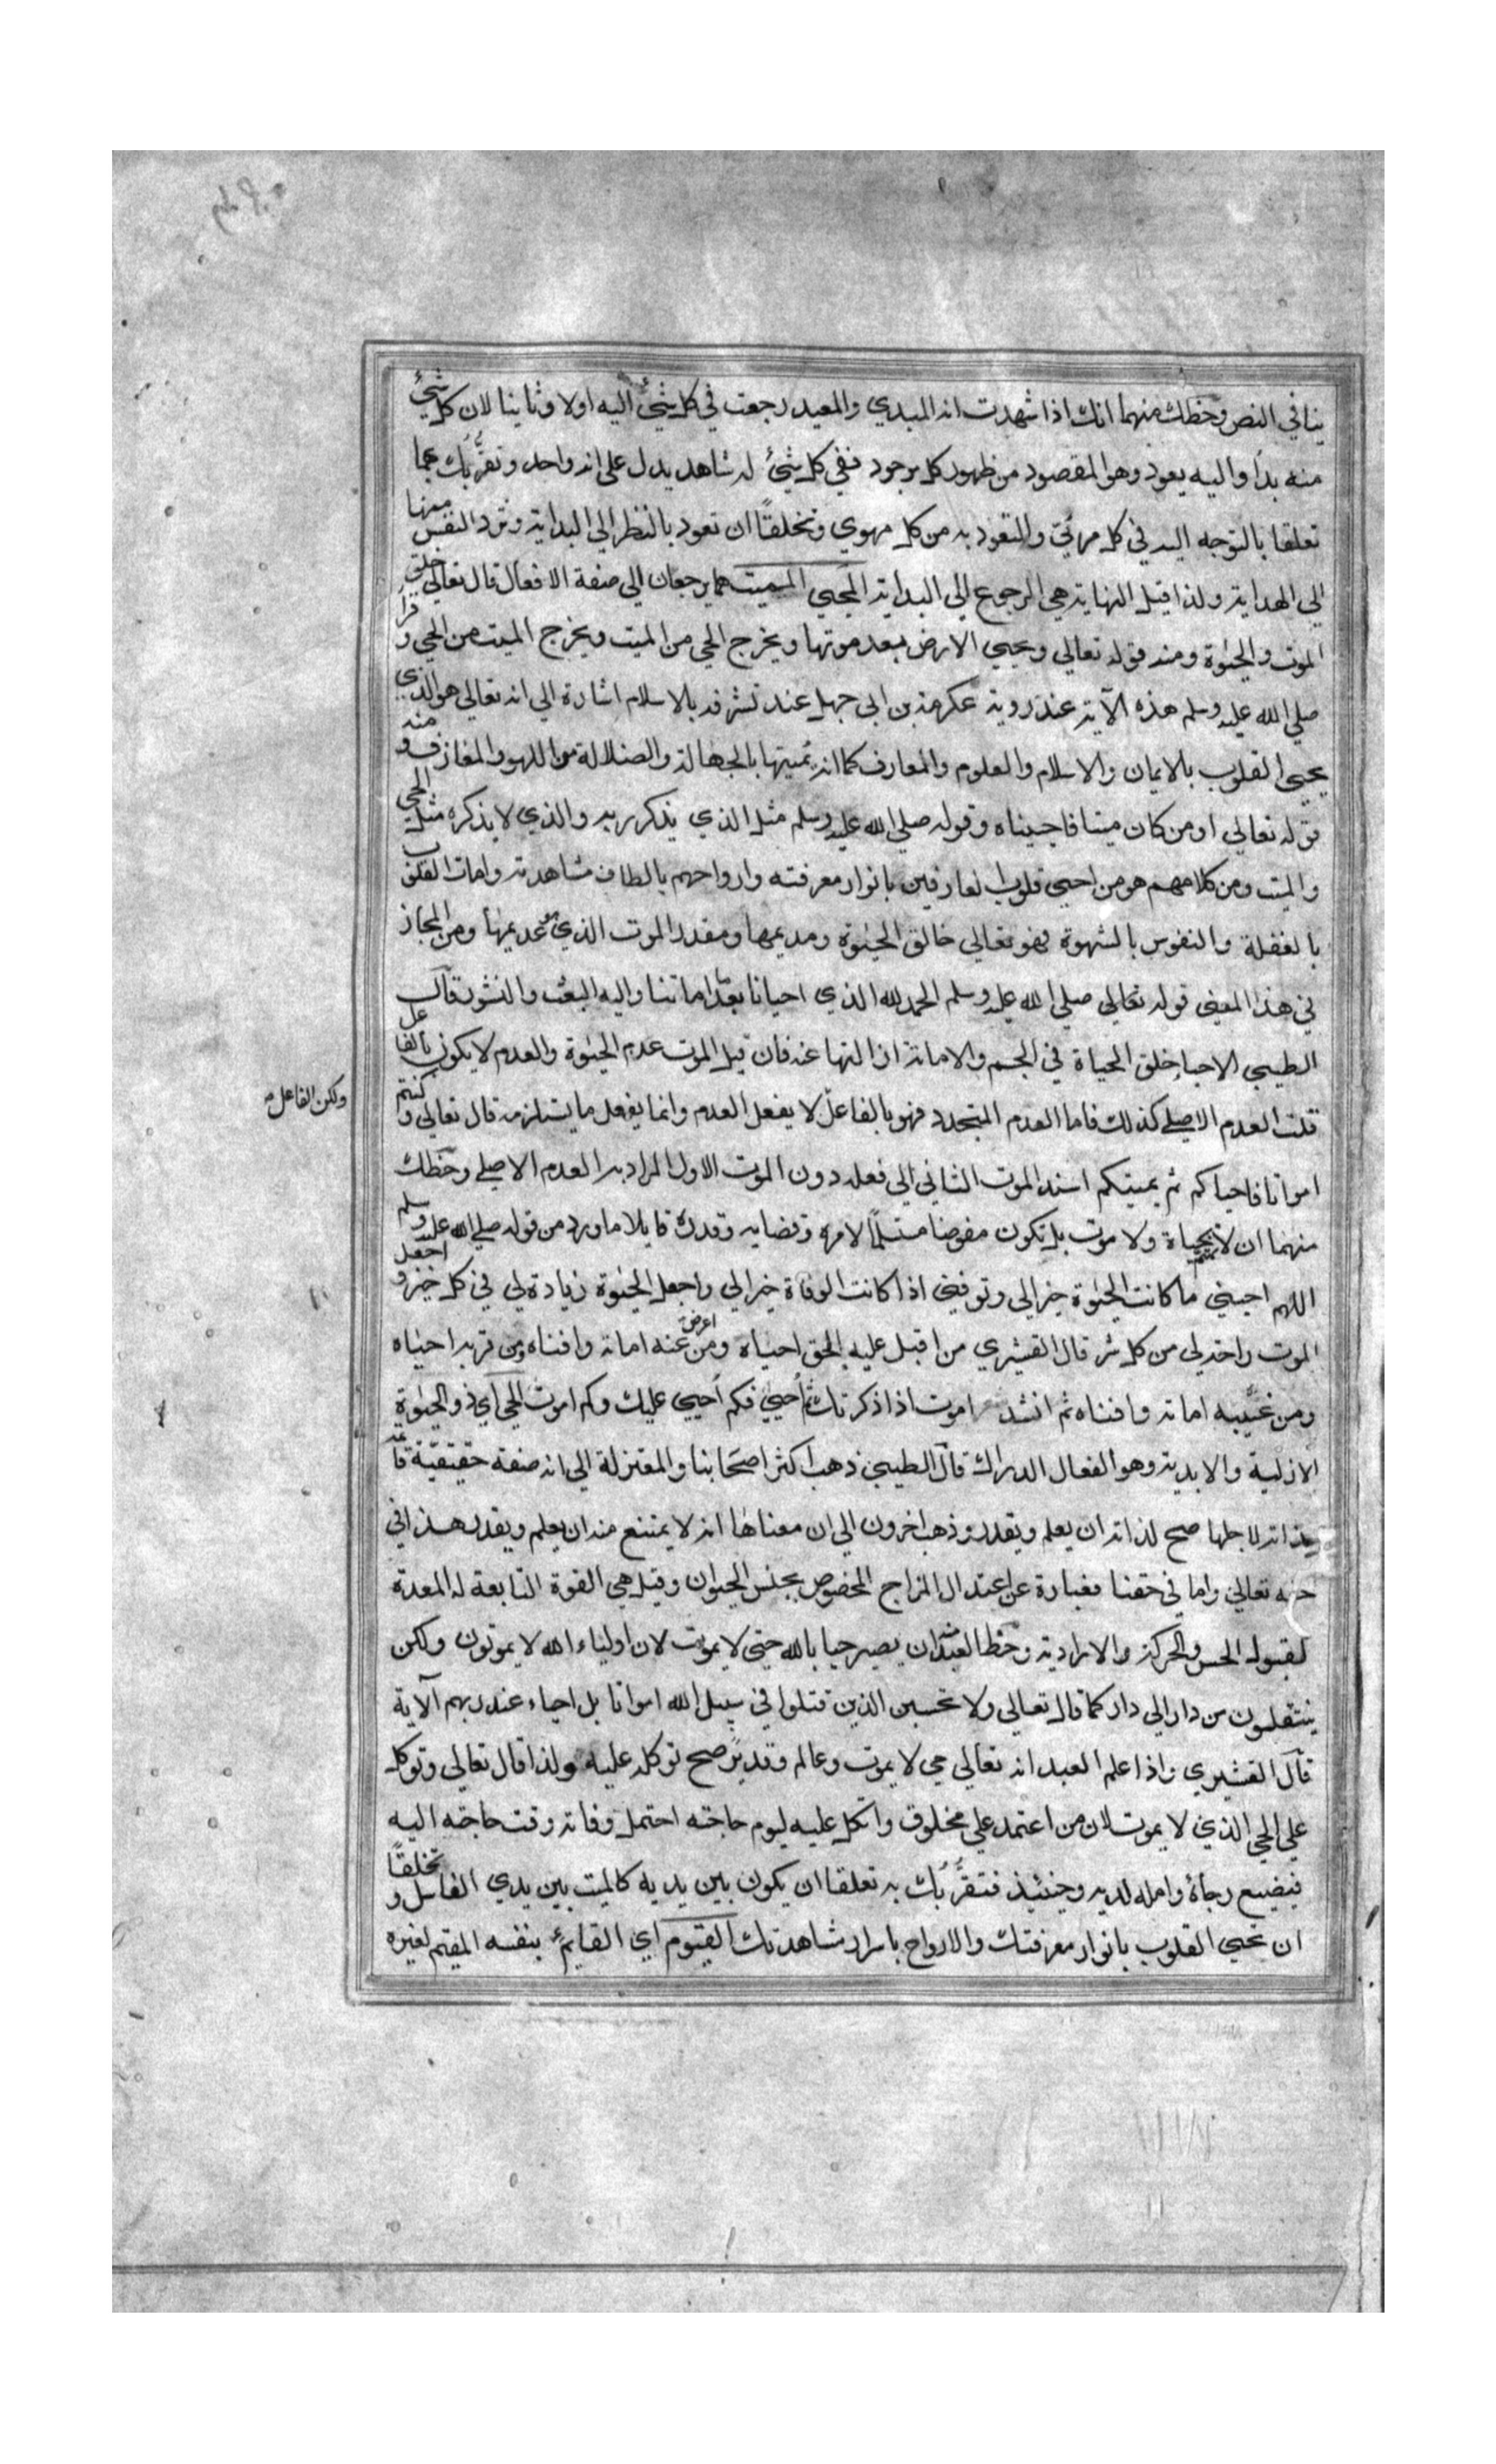 ينافي النص وحظك منهما انك اذا شهدت انه المبدي والمعيد رجعت في كل شيئ اليه اولا وثانيا لان كل شيئ
منه بدأ واليه يعود وهو المقصود من ظهور كل موجود ففي كل شيئ له شاهد يدل على انه واحد وتقرُّبك بهما
تعلقا بالتوجه اليه في كل مرئيّ والتعوذ به من كل مهوي وتخلقًا ان تعود بالنظر الي البداية وترد النفس منها
الي الهداية ولذا قيل النهاية هي الرجوع الي البداية المحيي المميت هما يرجعان الي صفة الافعال قال تعالي خلق
الموت والحيٰوة ومنه قوله تعالي ويحيي الارض بعد موتها ويخرج الحي من الميت ويخرج الميت من الحي وقرأ
صلي الله عليه وسلم هذه الآية عند روية عكرمة بن ابي جهل عند تشرفه بالاسلام اشارة الي انه تعالي هو الذي
يحيي القلوب بالايمان والاسلام والعلوم والمعارف كما انه يُميتها بالجهالة والضلالة واللهو والمعازف ومنه
قوله تعالي اومن كان ميتا فاحييناه وقوله صلي الله عليه وسلم مثل الذي يذكر ربه والذي لا يذكره مثل الحي
والميت ومن كلامهم هو من احيي قلوب العارفين بانوار معرفته وارواحهم بالطاف مشاهدته وامات القلوب
بالغفلة والنفوس بالشهوة فهو تعالي خالق الحيٰوة ومديمها ومقدر الموت الذي هو عديمها ومن المجاز
في هذا المعني قوله تعالي صلي الله عليه وسلم الحمد لله الذي احيانا بعد ما اماتنا واليه البعث والنشور قال
الطيبي الاحياء خلق الحياة في الجسم والاماتة ازالتها عنه فان قيل الموت عدم الحيٰوة والعدم لا يكون بالفاعل
قلت العدم الاصلي كذلك فاما العدم المتجدد فهو بالفاعل لا يفعل العدم وانما يفعل ما يستلزمه قال تعالي وكنتم
ولكن الفاعل
امواتا فاحياكم ثم يميتكم اسند الموت الثاني الي فعله دون الموت الاول المراد به العدم الاصلي وحظك
منهما ان لا بحياة ولا موت بل تكون مفوضا مستسلمًا لامره وقضايه وقدره قايلا ما ورد من قوله صلي الله عليه وسلم
اللهم احيني ما كانت الحيٰوة خيرا لي وتوفيني اذا كانت الوفاة خيرا لي واجعل الحيٰوة زيادة لي في كل خير واجعل
الموت راحة لي من كل شر قال القشيري من اقبل عليه الحق احياه ومن اعرض عنه اماته وافناه ومن قربه احياه
ومن غيبه اماته وافناه ثم انشد اموت اذا ذكرتك ثم أحيي فكم أحيي عليك وكم اموت الحي اي ذو الحيٰوة
الازلية والابدية وهو الفعال الدراك قال الطيبي ذهب اكثر اصحابنا والمعتزلة الي انه صفة حقيقية قائمة
بذاته لاجلها صح لذاته ان يعلم ويقدر وذهب اخرون الي ان معناها انه لا يمتنع منه ان يعلم ويقدر هذا في
حقه تعالي واما في حقنا فعبارة عن اعتدال المزاج المخصوص بجنس الحيوان وقيل هي القوة التابعة له المعدة
لقبول الحس والحركة والارادية وحظ العبد ان يصير حيا بالله حتي لا يموت لان اولياء الله لا يموتون ولكن
ينتقلون من دار الي دار كما قال تعالي ولا تحسبن الذين قتلوا في سبيل الله امواتا بل احياء عند ربهم الآية
قال القشيري واذا علم العبد انه تعالي حي لا يموت وعالم وقدير صح توكله عليه ولذا قال تعالي وتوكل
علي الحي الذي لا يموت لان من اعتمد علي مخلوق واتكل عليه ليوم حاجته احتمل وفاته وقت حاجته اليه
فيضيع رجاؤه وامله لديه وحينئذ فتقرُّبُك به تعلقا ان يكون بين يديه كالميت بين يدي الغاسل وتخلقًا
ان تحيي القلوب بانوار معرفتك والارواح باسرار مشاهدتك القيوم اي القايم بنفسه المقيم لغيره